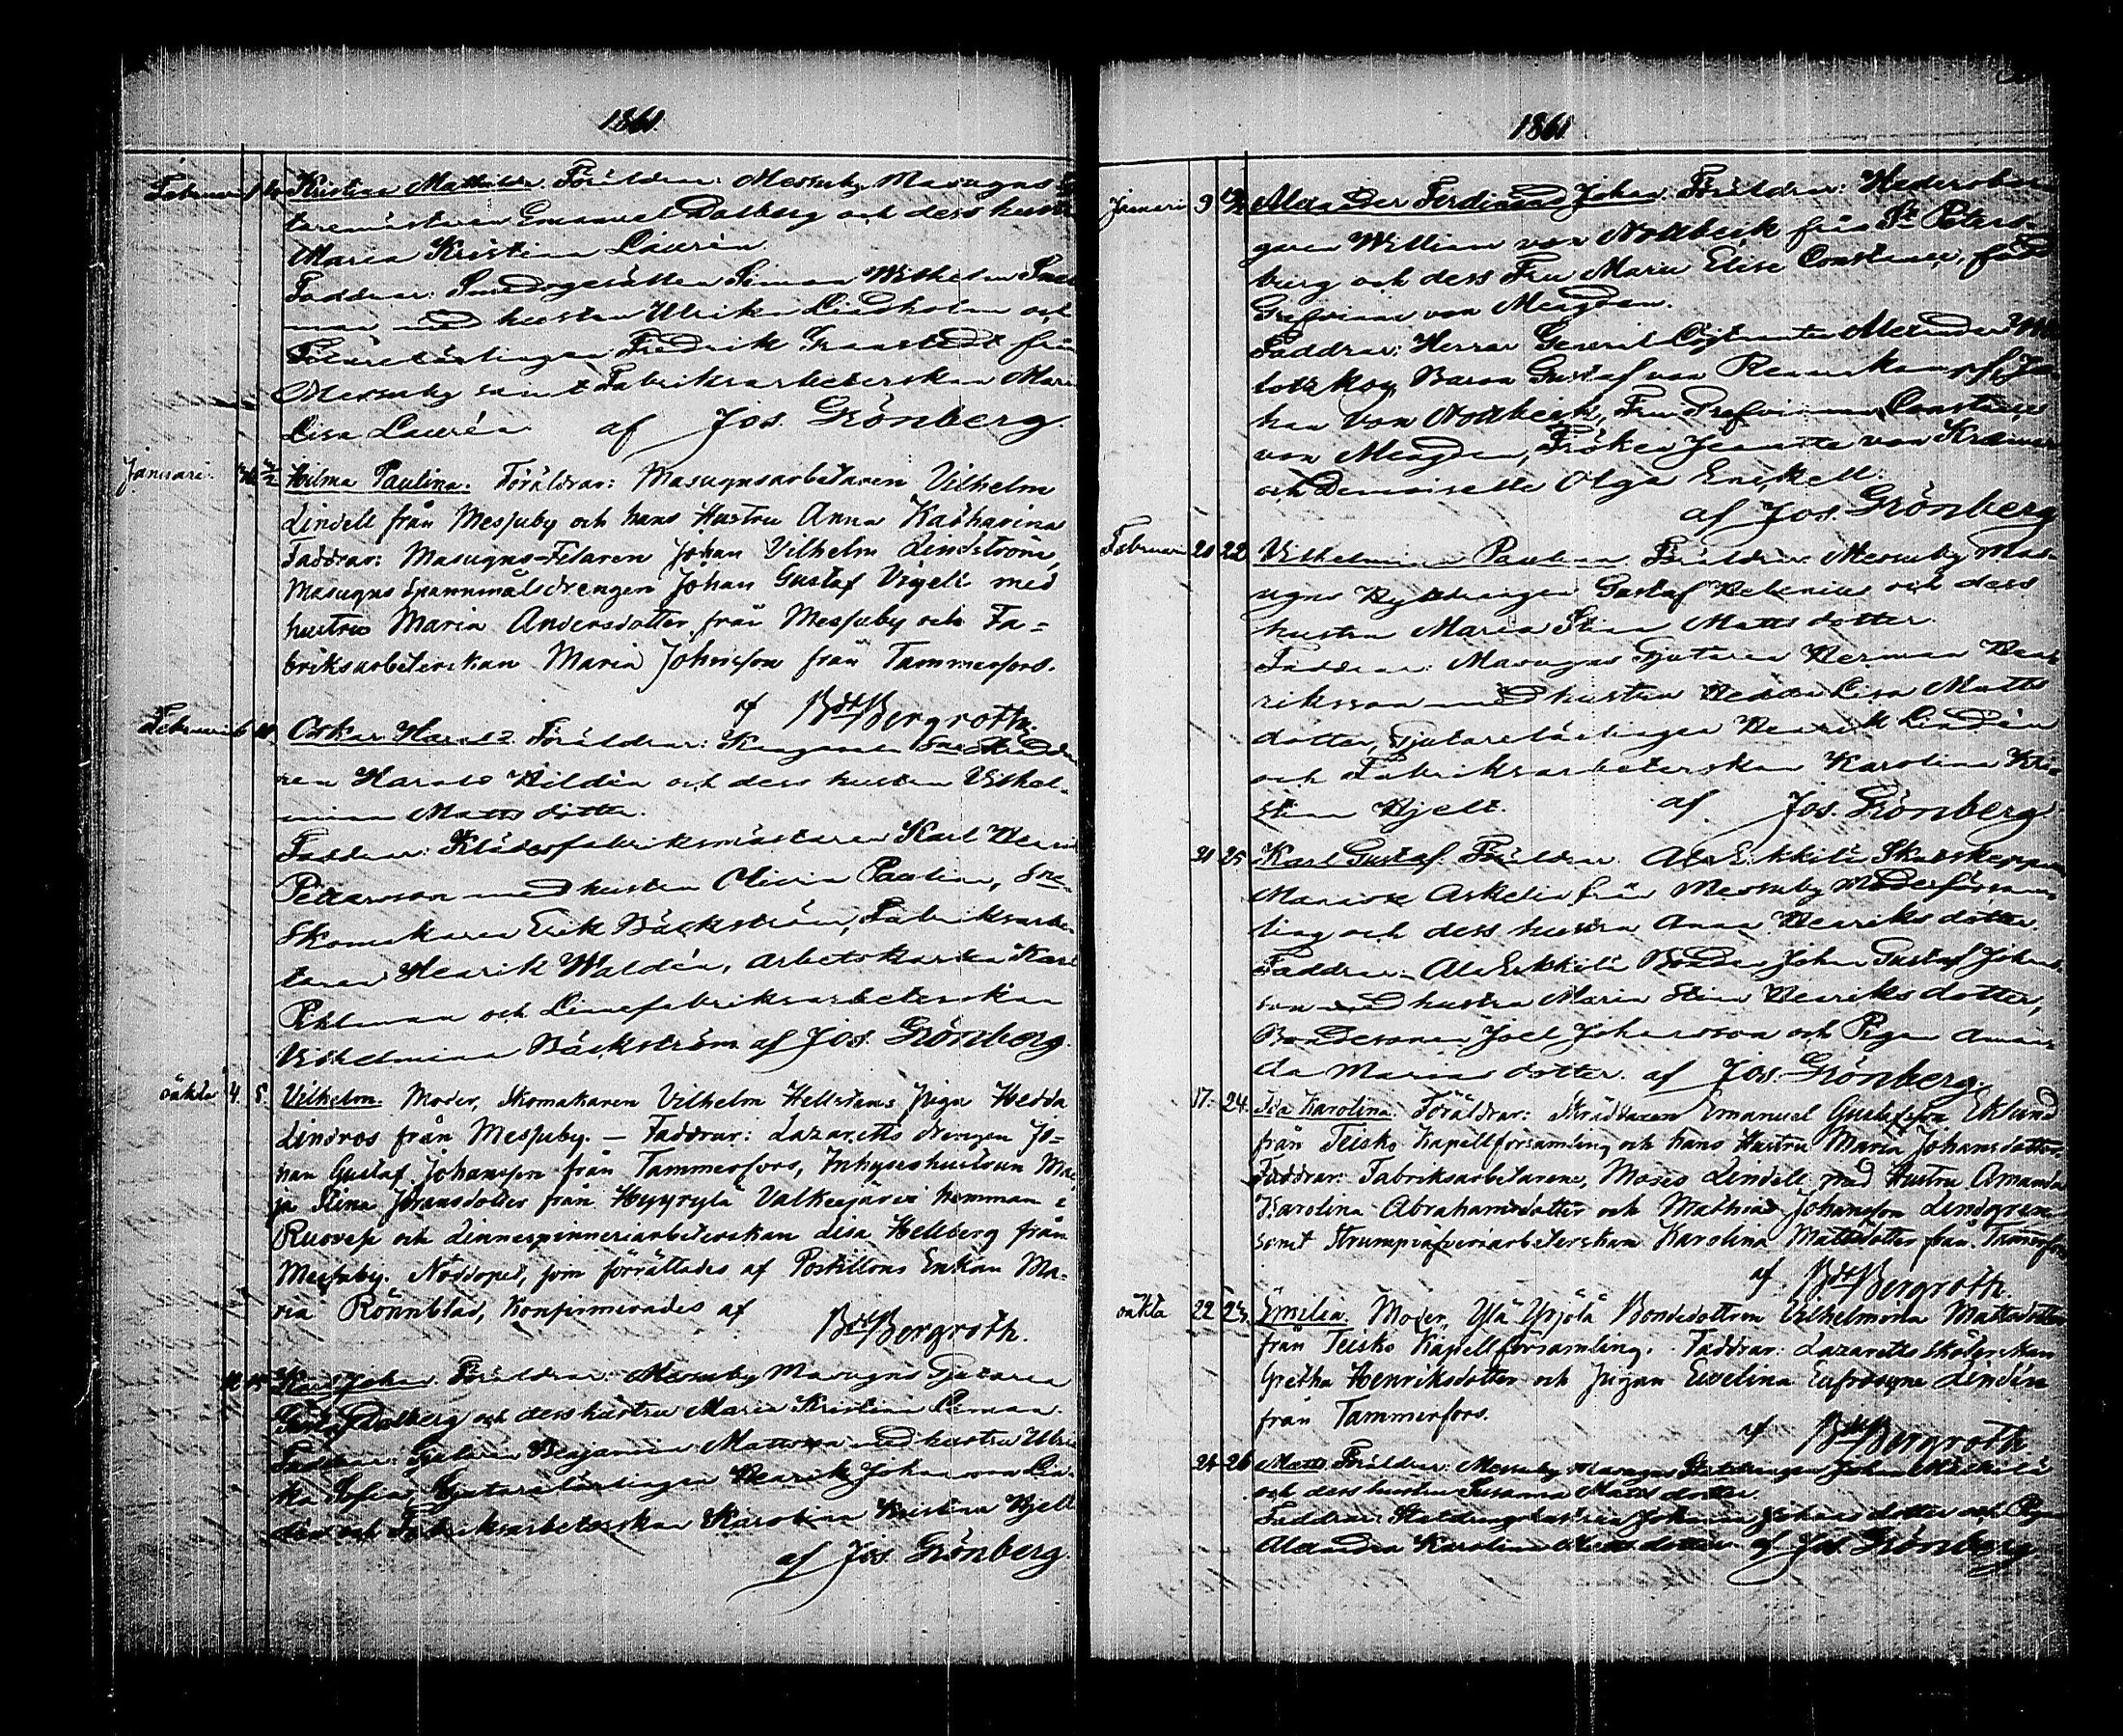 1861.
Februari Kristina Mathilda. Föräldrar: Messuby Masugns
taremästaren Emanuel Dalberg och dess hustru
Maria Kristina Laurén
Faddrar: Smedsgesällen Simon Wilhelm
man med hustru Ulrika Lindholm och
Gjutarelärlingen Fredrik Granstedt från
Messuby samt Fabriksarbeterskan Maria
Lisa Laurén af Jos. Grönberg.
Januari. Hilma Paulina. Föräldrar: Masugnsarbetaren Vilhelm
Lindell från Messuby och hans Hustru Anna Katharina
Faddrar: Masugns-Filaren Johan Vilhelm Lindström,
Masugns Spannmålsdrengen Johan Gustaf Vigell med
hustru Maria Andersdotter från Messuby och Fa=
briksarbeterskan Maria Johnsson från Tammerfors.
af Bergroth.
Februari 6 10. Oskar Harald. Föräldrar:
ren Harald Hildén och dess hustru Vilhel-
mina Mattsdotter.
Faddrar: Klädesfabriksmästaren Karl Henrik
Pettersson med hustru Olivia Paulina,
Skomakaren Erik Bäckström, Fabriksarbe-
taren Henrik Waldén, Arbetskarlen Karl
Pihlman och Linnefabriksarbeterskan
Vilhelmina Bäckström af Jos. Grönberg.
oäkta 4. 5. Vilhelm. Moder, Skomakaren Vilhelm Hellstens piga Hedda
Lindros från Messuby. — Faddrar: Lazaretts drengen Jo=
han Gustaf Johansson från Tammerfors, Inhyseshustrun Ma=
ja Stina Johansdotter från Hyyrylä Valkeejärvi hemman i
Ruovesi och Linnespinneriarbeterskan Lisa Hellberg från
Messuby. Nöddopet, som förrättades af Postillons Enkan Ma=
ria Rönnblad, Konfirmerades af
Bergroth.
Karl Johan. Föräldrar: Messuby Masugns Gjutaren
Gustaf Dalberg och dess hustru Maria Kristina
Faddrar: Gjutaren Benjamin Mattsson med hustru Ulri
ka Sofia, Gjutarelärlingen Henrik Johansson Lin-
dén och Fabriksarbeterskan Karolina Kristina Hjelt
af Jos. Grönberg.
1861
Januari 9 Alexander Ferdinand Johan. Föräldrar: Hedersbor-
garen William von Nottbeck från St. Peters-
burg och dess Fru Maria Elise Constance, född
Grefvinna von Mengden.
Faddrar: Herrar General Löjtnanten Alexander
Baron Gustaf von Rennenkampf, Jo-
han von Nottbeck, Fru Grefvinnan Constance
von Mengden, Fröken Jeanette von Kræmer
och Demoiselle Olga Enckell.
af Jos. Grönberg
Februari 20 22 Vilhelmina Paulina. Föräldrar: Messuby Mas-
ugns Hyttdrengen Gustaf Helenius och dess
hustru Maria Stina Mattsdotter.
Faddrar: Masugns Gjutaren Herman Hen-
riksson med hustru Hedda Lisa Matts
dotter, Gjutarelärlingen Henrik Lindén
och Fabriksarbeterskan Karolina Kri-
stina Hjelt. af Jos. Grönberg
20 25 Karl Gustaf. Föräldrar: Ala Erkkilä
Askelin från Messuby Moderförsam-
ling och dess hustru Anna Henriksdotter.
Faddrar: Ala Erkkilä Bonden Johan Gustaf Johans-
son med hustru Maria Stina Henriksdotter,
Bondesonen Joel Johansson och Pigan Aman-
da Mariasdotter. af Jos. Grönberg.
17. 24. Ida Karolina. Föräldrar: Skräddaren Emanuel Gustafsson Eklund
från Teisko Kapellförsamling och hans Hustru Maria Johansdotter.
Faddrar: Fabriksarbetarene, Moses Lindell med Hustru Amanda
Karolina Abrahamsdotter och Mathias Johansson Lindgren
samt Strumpväfveriarbeterskan Karolina Mattsdotter från Tammerfors
af Bergroth.
oäkta 22 23. Emilia. Moder, Ylä Yrjölä Bondedottren Vilhelmina Mattsdotter
från Teisko Kapellförsamling. Faddrar: Lazaretts sköterskan
Gretha Henriksdotter och pigan Evelina Eufrosyne Lindén
från Tammerfors.
af Bergroth
24 26 Matts. Föräldrar: Messuby Masugns Stalldrengen Johan
och dess hustru Susanna Mattsdotter.
Faddrar: Stalldrengshustrun Johanna Johansdotter och Pigan
Alexandra Karolina Mattsdotter af Jos. Grönberg